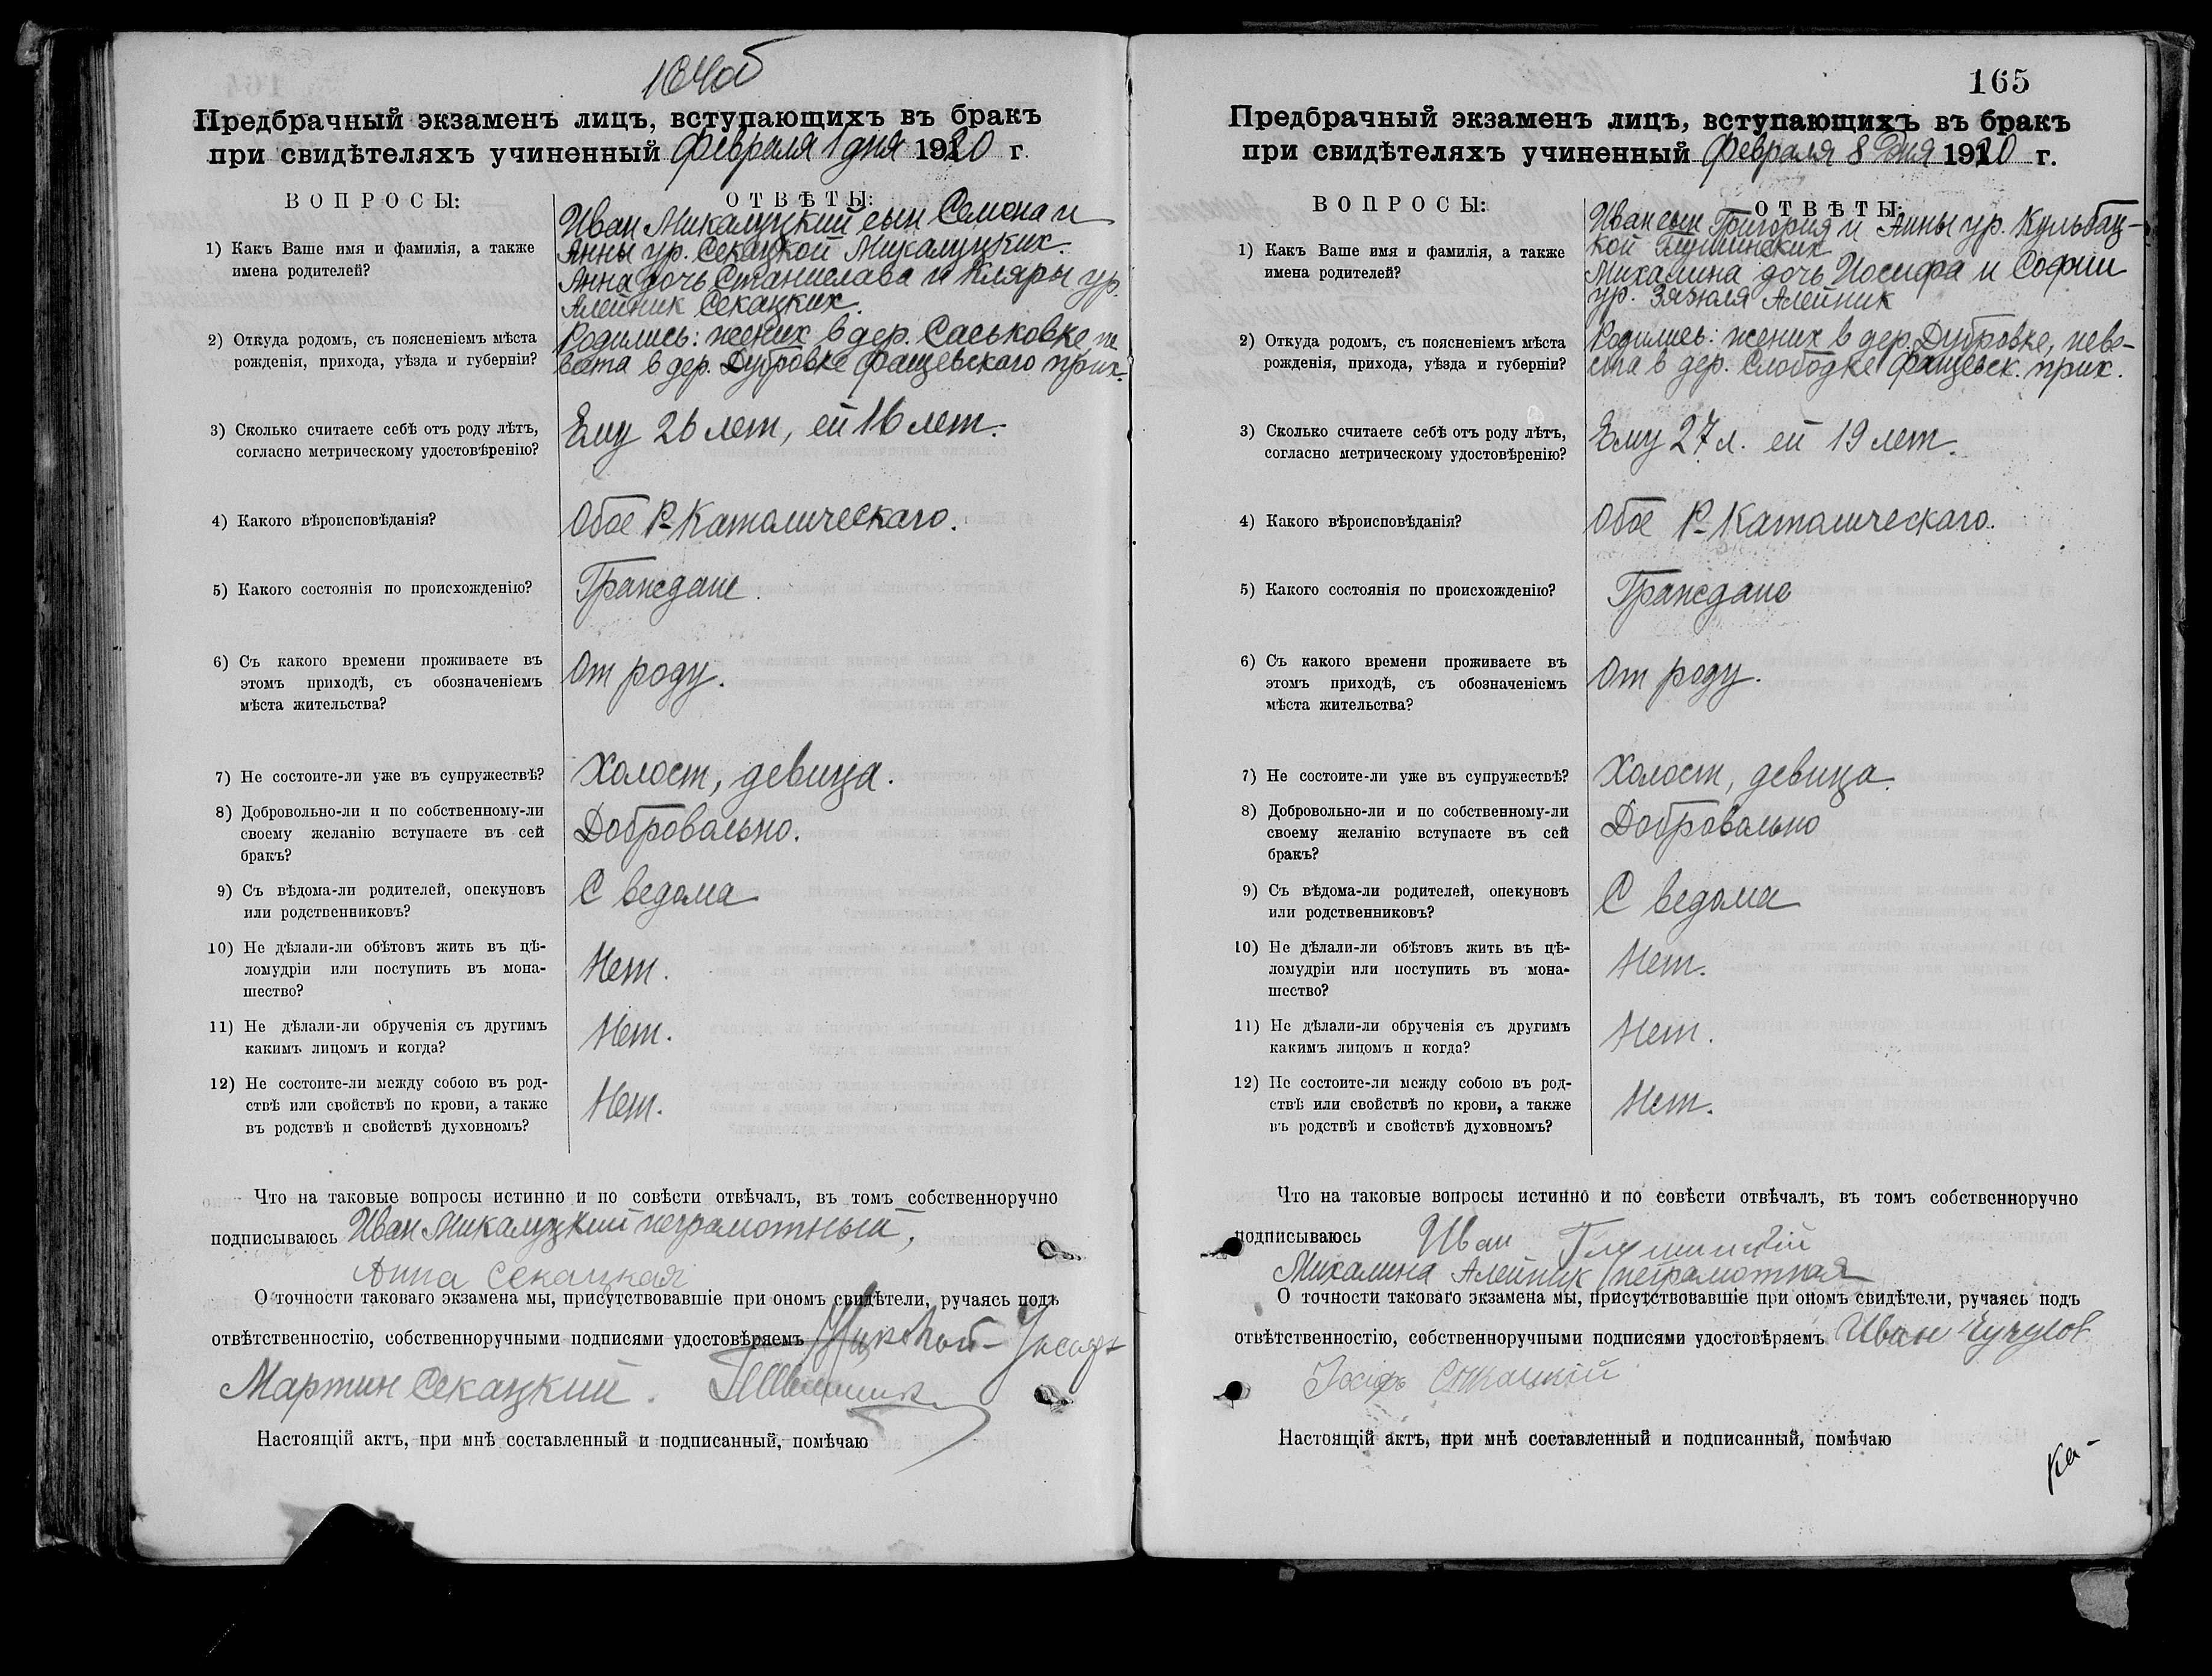 164об
Предбрачный экзаменъ лицъ, вступающихъ въ бракъ
при свидѣтеляхъ учиненный февраля 1 дня 1920 г.
ВОПРОСЫ:
ОТВѢТЫ:
1) Какъ Ваше имя и фамилія, а также
имена родителей?
Иван Микалуцкий сын Семена и
Анны ур. Секацкой Микалуцких.
Анна дочь Станислава и Кляры ур.
Алейник Секацких.
2) Откуда родомъ, съ поясненіемъ мѣста
рожденія, прихода, уѣзда и губерніи?
Родились: жених в дер. Саськовке не
веста в дер. Дубровке Фащевскаго прих.
3) Сколько считаете себѣ отъ роду лѣтъ,
согласно метрическому удостовѣренію?
Ему 26 лет, ей 16 лет.
4) Какого вѣроисповѣданія?
Обое Р-Католическаго.
5) Какого состоянія по происхожденію?
Граждане.
6) Съ какого времени проживаете въ
этомъ приходѣ, съ обозначеніемъ
мѣста жительства?
От роду.
7) Не состоите-ли уже въ супружествѣ?
Холост, девица.
8) Добровольно-ли и по собственному-ли
своему желанію вступаете въ сей
бракъ?
Добровольно.
9) Съ вѣдома-ли родителей, опекуновъ
или родственниковъ?
С ведома
10) Не дѣлали-ли обѣтовъ жить въ цѣ-
ломудріи или поступить въ мона-
шество?
Нет.
11) Не дѣлали-ли обрученія съ другимъ
какимъ лицомъ и когда?
Нет.
12) Не состоите-ли между собою въ род-
ствѣ или свойствѣ по крови, а также
въ родствѣ и свойствѣ духовномъ?
Нет.
Что на таковые вопросы истинно и по совѣсти отвѣчалъ, въ томъ собственноручно
подписываюсь Иван Микалуцкий неграмотный,
Анна Секацкая
О точности таковаго экзамена мы, присутствовавшіе при ономъ свидѣтели, ручаясь подъ
отвѣтственностію, собственноручными подписями удостовѣряемъ
Мартин Секацкий.
Настоящій актъ, при мнѣ составленный и подписанный, помѣчаю
165
Предбрачный экзаменъ лицъ, вступающихъ въ бракъ
при свидѣтеляхъ учиненный февраля 8 дня 1920 г.
ВОПРОСЫ:
ОТВѢТЫ:
1) Какъ Ваше имя и фамилія, а также
имена родителей?
Иван сын Григория и Анны ур. Кульбац-
кой Глушинских
Михалина дочь Иосифа и Софии
ур. Зязюля Алейник
2) Откуда родомъ, съ поясненіемъ мѣста
рожденія, прихода, уѣзда и губерніи?
Родились: жених в дер. Дубровке, неве-
ста в дер. Слободке Фащевск. прих.
3) Сколько считаете себѣ отъ роду лѣтъ,
согласно метрическому удостовѣренію?
Ему 27 л. ей 19 лет.
4) Какого вѣроисповѣданія?
Обое Р-Католическаго.
5) Какого состоянія по происхожденію?
Граждане
6) Съ какого времени проживаете въ
этомъ приходѣ, съ обозначеніемъ
мѣста жительства?
От роду.
7) Не состоите-ли уже въ супружествѣ?
Холост, девица.
8) Добровольно-ли и по собственному-ли
своему желанію вступаете въ сей
бракъ?
Добровольно
9) Съ вѣдома-ли родителей, опекуновъ
или родственниковъ?
С ведома
10) Не дѣлали-ли обѣтовъ жить въ цѣ-
ломудріи или поступить въ мона-
шество?
Нет.
11) Не дѣлали-ли обрученія съ другимъ
какимъ лицомъ и когда?
Нет.
12) Не состоите-ли между собою въ род-
ствѣ или свойствѣ по крови, а также
въ родствѣ и свойствѣ духовномъ?
Нет.
Что на таковые вопросы истинно и по совѣсти отвѣчалъ, въ томъ собственноручно
подписываюсь Иван Глушинскій
Михалина Алейник неграмотная
О точности таковаго экзамена мы, присутствовавшіе при ономъ свидѣтели, ручаясь подъ
отвѣтственностію, собственноручными подписями удостовѣряемъ Иван
Настоящій актъ, при мнѣ составленный и подписанный, помѣчаю
Ка-